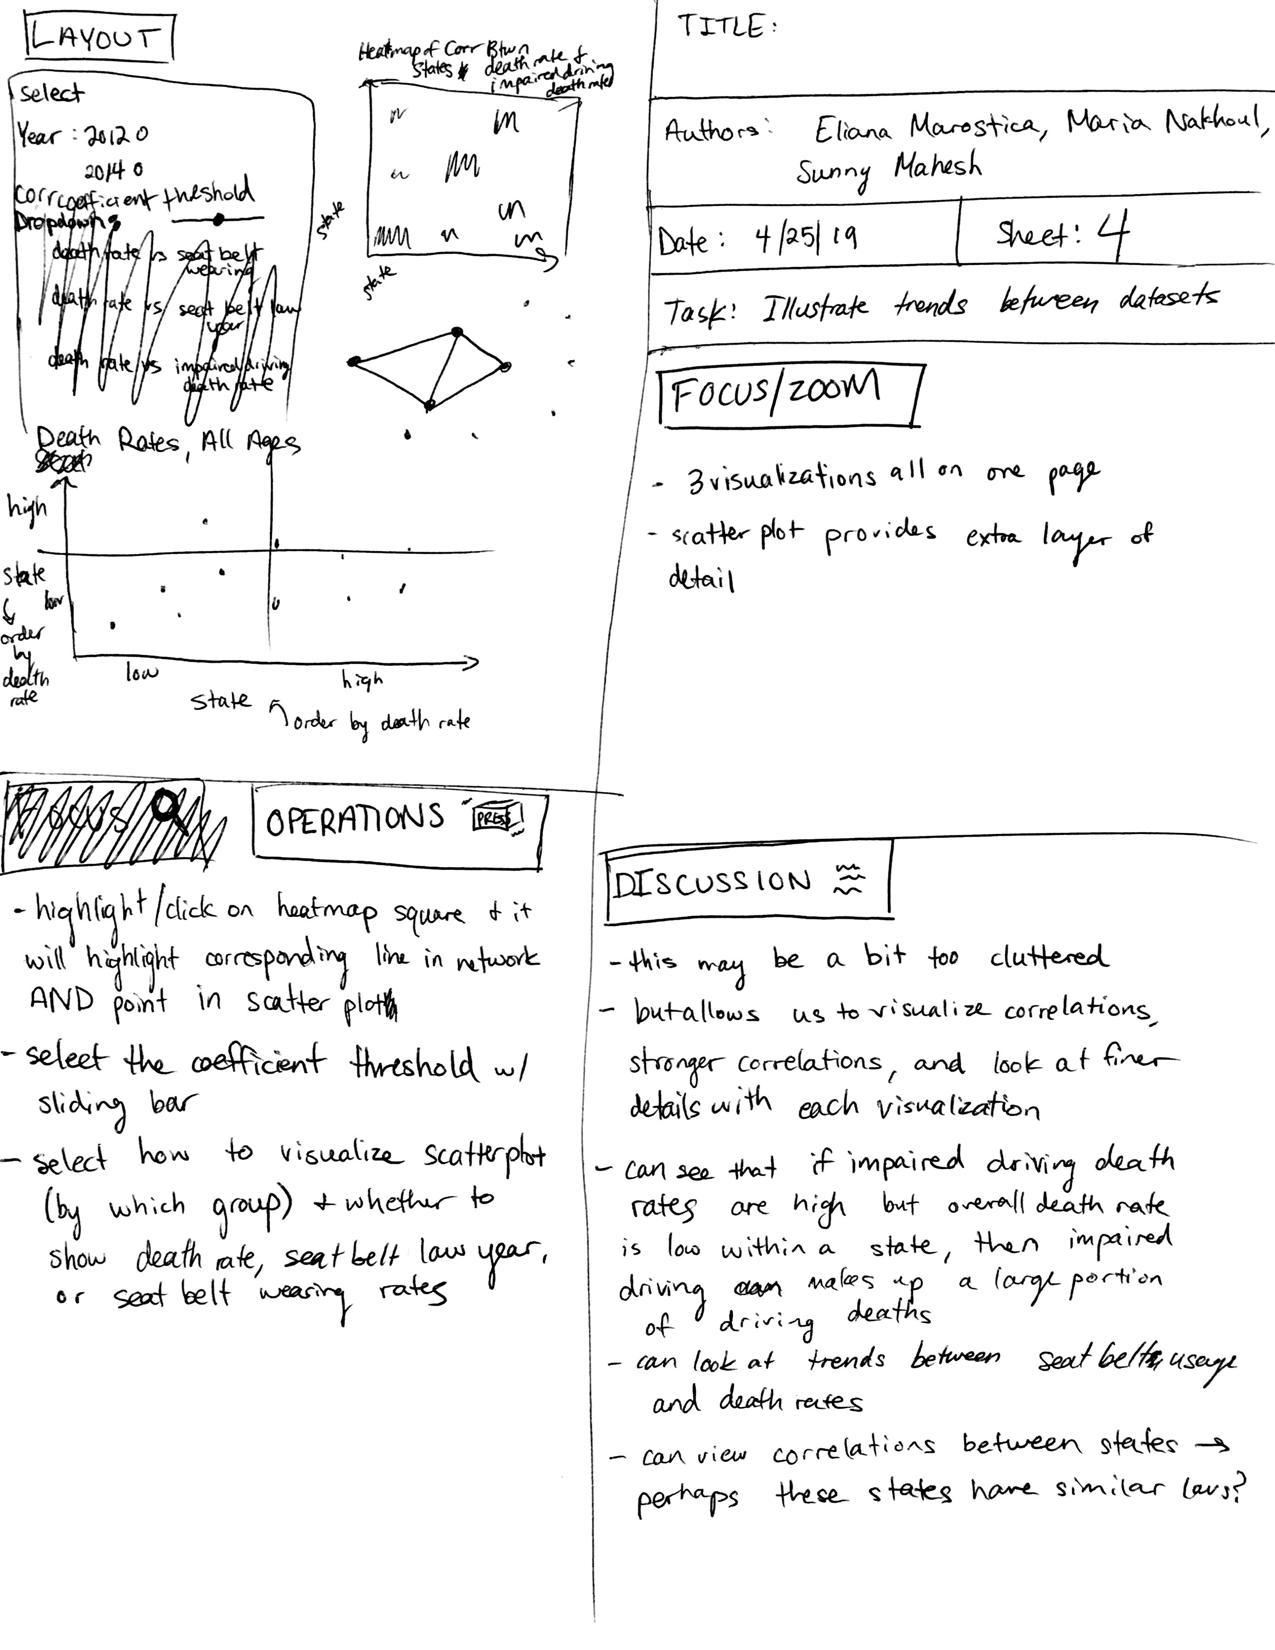 LAYOUT
select
Year : 2012 o
2014 o
corr coefficient threshold
Dropdowns
death rate vs seat belt
wearing
death rate vs seat belt law
year
death rate vs impaired driving
death rate
Heatmap of Corr Btwn
States death rate &
impaired driving
death rate
state
state
Death Rates, All Ages
high
state
low
order
by
death
rate
low
high
State
order by death rate
TITLE:
Authors: Eliana Marostica, Maria Nakhoul,
Sunny Mahesh
Date: 4/25/19
Sheet: 4
Task: Illustrate trends between datasets
FOCUS/ZOOM
- 3 visualizations all on one page
- scatter plot provides extra layer of
detail
FOCUS
OPERATIONS PRESS
- highlight/click on heatmap square & it
will highlight corresponding line in network
AND point in scatter plot
- select the coefficient threshold w/
sliding bar
- select how to visualize scatterplot
(by which group) & whether to
show death rate, seat belt law year,
or seat belt wearing rates
DISCUSSION
- this may be a bit too cluttered
- but allows us to visualize correlations,
stronger correlations, and look at finer
details with each visualization
- can see that if impaired driving death
rates are high but overall death rate
is low within a state, then impaired
driving makes up a large portion
of driving deaths
- can look at trends between seat belt usage
and death rates
- can view correlations between states →
perhaps these states have similar laws?